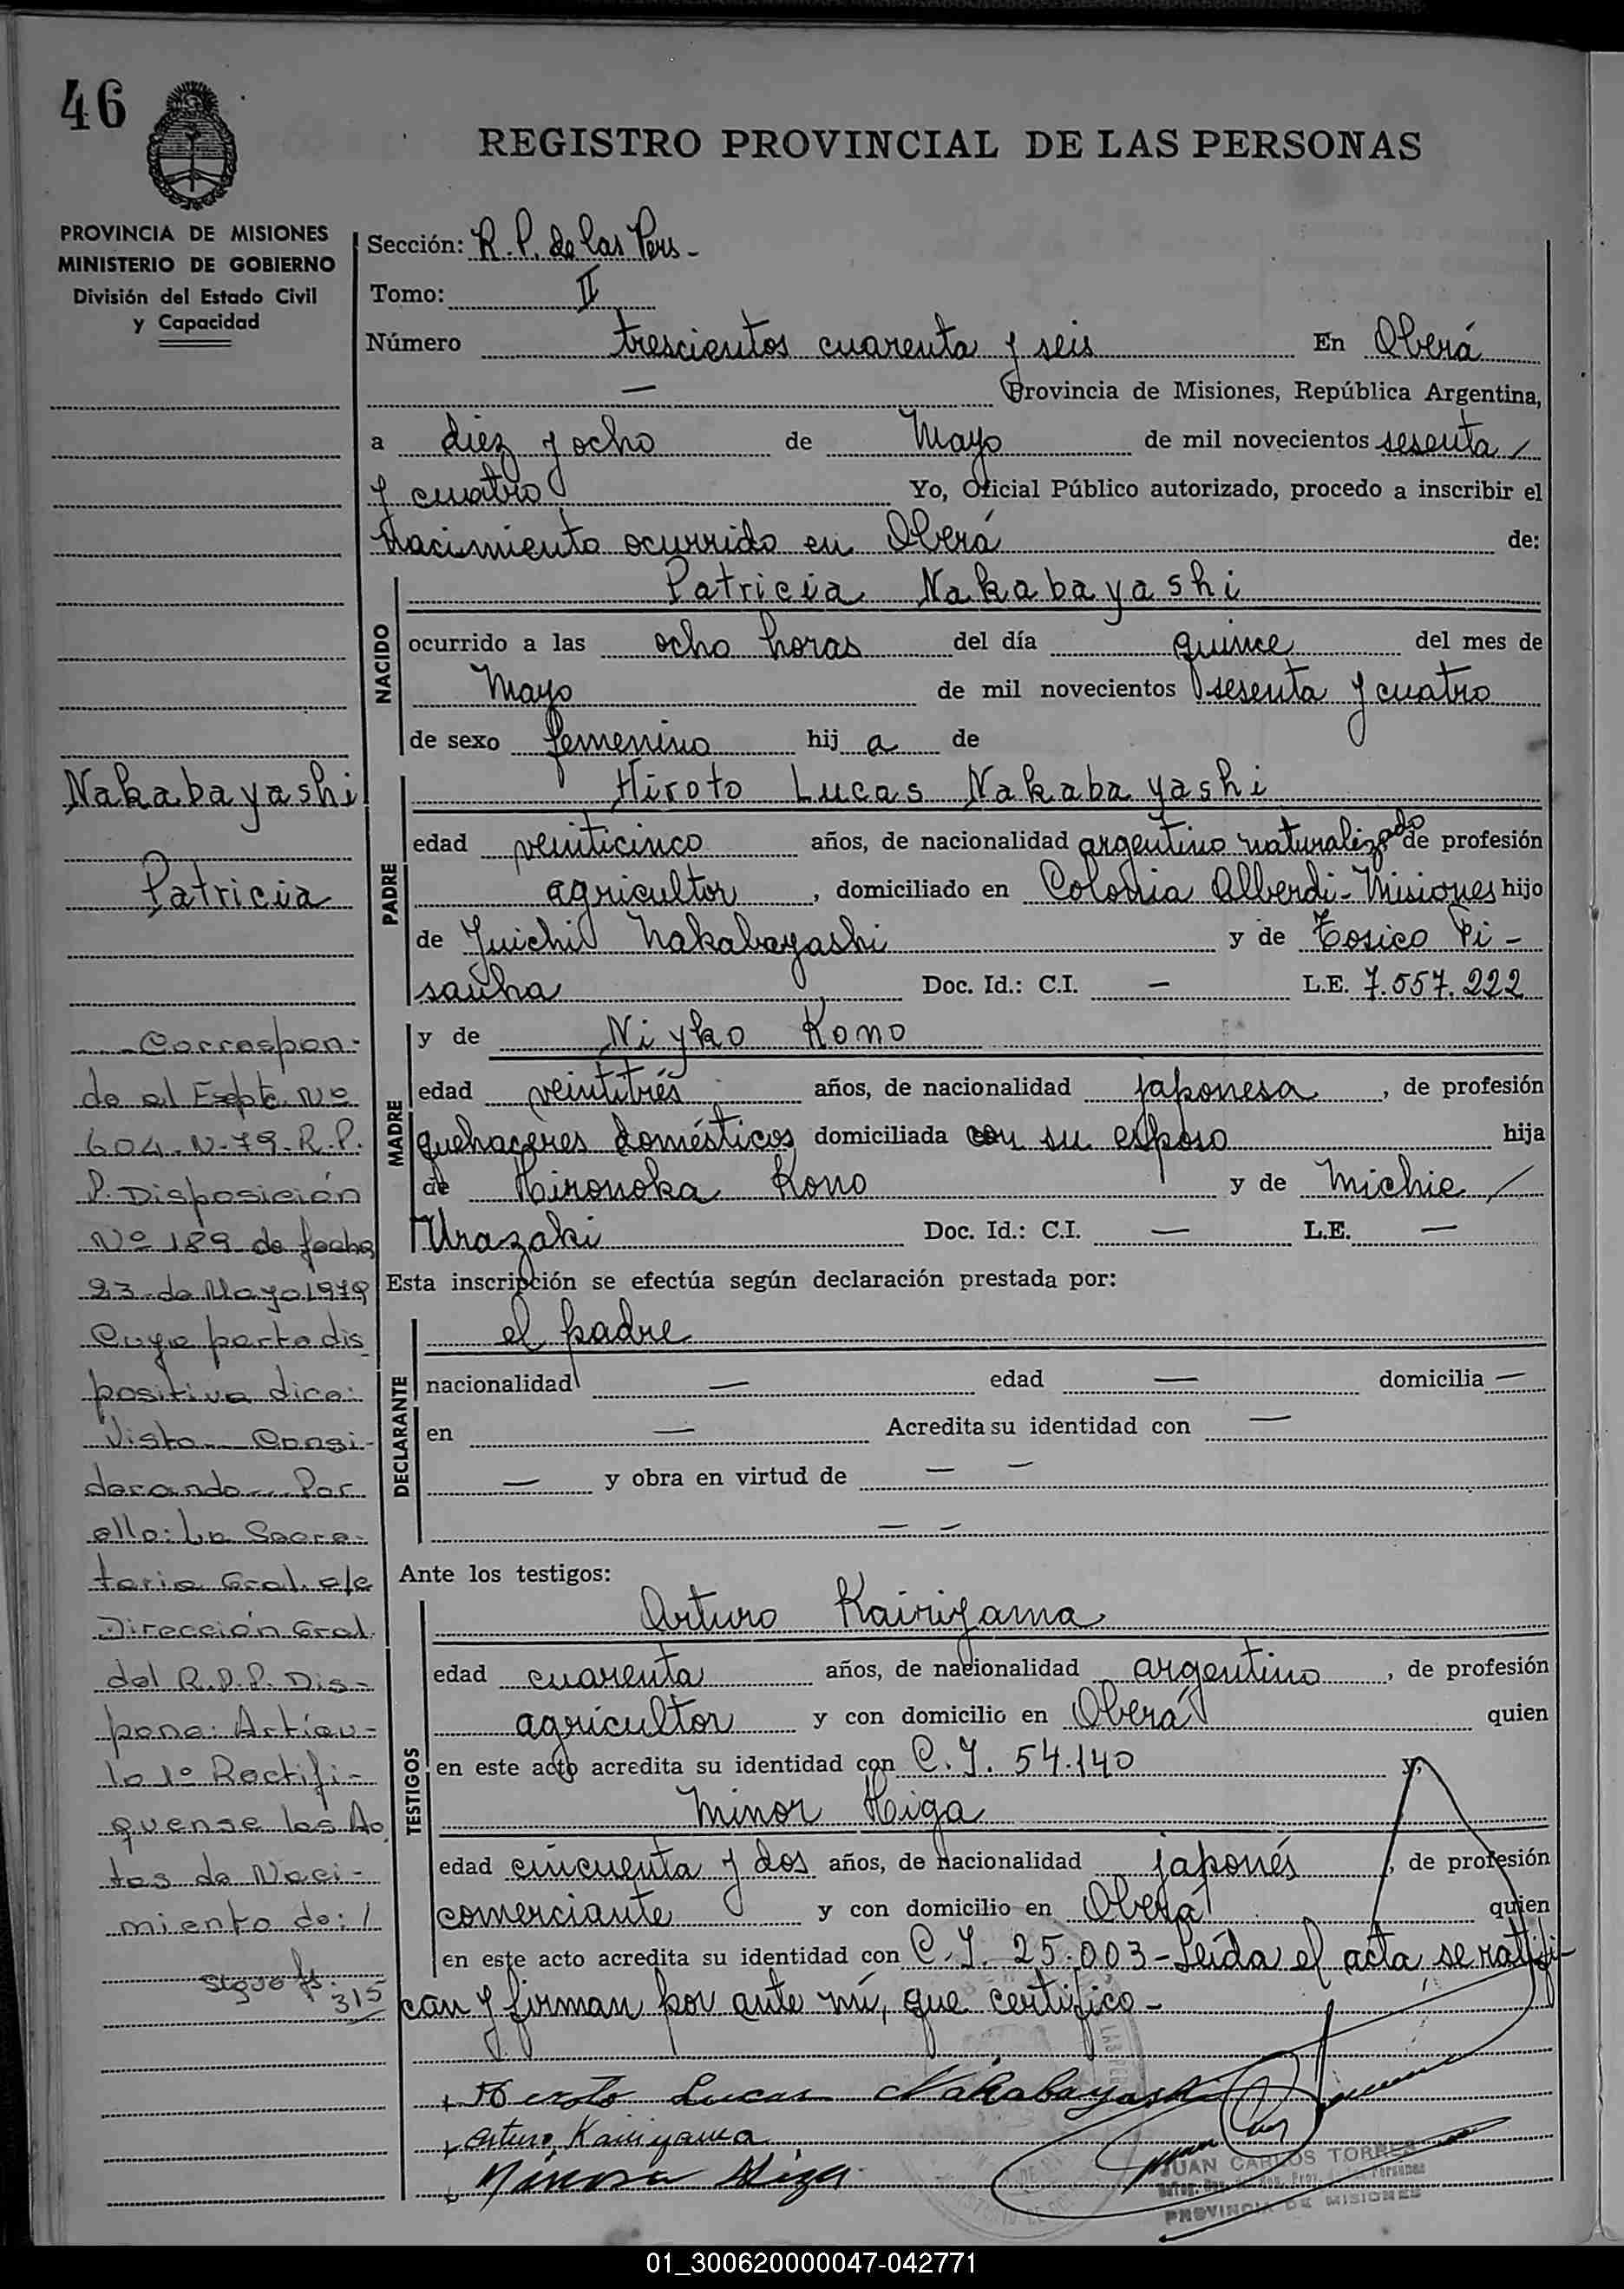 46
REGISTRO PROVINCIAL DE LAS PERSONAS
PROVINCIA DE MISIONES
MINISTERIO DE GOBIERNO
División del Estado Civil
y Capacidad
Sección: R. P. de las Pers -
Tomo: II
Número trescientos cuarenta y seis En Oberá
— Provincia de Misiones, República Argentina,
a diez y ocho de Mayo de mil novecientos sesenta /
y cuatro Yo, Oficial Público autorizado, procedo a inscribir el
nacimiento ocurrido en Oberá de:
NACIDO
Patricia Nakabayashi
ocurrido a las ocho horas del día quince del mes de
Mayo de mil novecientos sesenta y cuatro
de sexo femenino hij a de
PADRE
Hiroto Lucas Nakabayashi
edad veinticinco años, de nacionalidad argentino naturalizado de profesión
agricultor , domiciliado en Colonia Alberdi - Misiones hijo
de Juichi Nakabayashi y de Tosico Fi -
sauha Doc. Id.: C.I. — L.E. 7.557.222
MADRE
y de Niyko Kono
edad veintitrés años, de nacionalidad japonesa , de profesión
quehaceres domésticos domiciliada con su esposo hija
de Hironoka Kono y de Michie /
Urazaki Doc. Id.: C.I. — L.E. —
Esta inscripción se efectúa según declaración prestada por:
DECLARANTE
el padre
nacionalidad — edad — domicilia —
en — Acredita su identidad con —
— y obra en virtud de — —
— —
Ante los testigos:
TESTIGOS
Arturo Kairiyama
edad cuarenta años, de nacionalidad argentino , de profesión
agricultor y con domicilio en Oberá quien
en este acto acredita su identidad con C. I. 54.140 y,
Minor Higa
edad cincuenta y dos años, de nacionalidad japonés , de profesión
comerciante y con domicilio en Oberá quien
en este acto acredita su identidad con C. I. 25.003 - Leída el acta, se ratifi-
can y firman por ante mí, que certifico -
Hiroto Lucas Nakabayashi
Arturo Kairiyama
Minoru Higa
JUAN CARLOS TORRES
PROVINCIA DE MISIONES
Nakabayashi
Patricia
Correspon-
de al Expte. Nº
604-N-79-R.P.
P. Disposición
Nº 189 de fecha
23 de Mayo 1979
Cuya parte dis
positiva dice:
Visto... Consi-
derando... Por
ello: La Secre-
taria Gral. a/c
Dirección Gral.
del R.P.P. Dis-
pone: Artícu-
lo 1º Rectifí-
quense las Ac
tas de Naci-
miento de: /
Sigue fs.
315
01_300620000047-042771